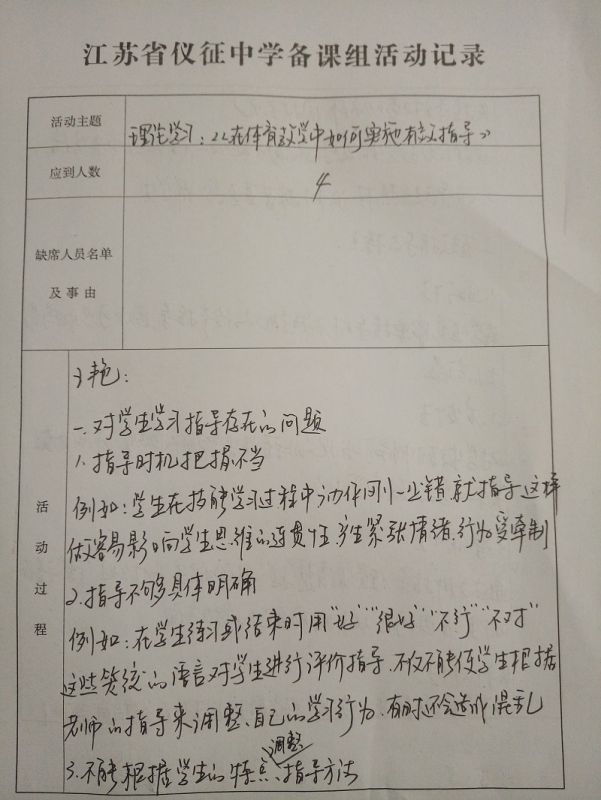 江苏省仪征中学备课组活动记录
活动主题
理论学习：《在体育教学中如何实施有效指导》
应到人数
4
缺席人员名单
及事由
活动过程
一.对学生学习指导存在的问题
1.指导时机把握不当
例如：学生在技能学习过程中动作刚一出错.就指导这样
做容易影响学生思维的连贯性.产生紧张情绪.行为受牵制
2.指导不够具体明确
例如：在学生练习或结束时用“好”“很好”“不行”“不对”
这些笼统的语言对学生进行评价指导.不仅不能使学生根据
老师的指导来调整、自己的学习行为.有时还会造成混乱
3.不能根据学生的特点、调整指导方法